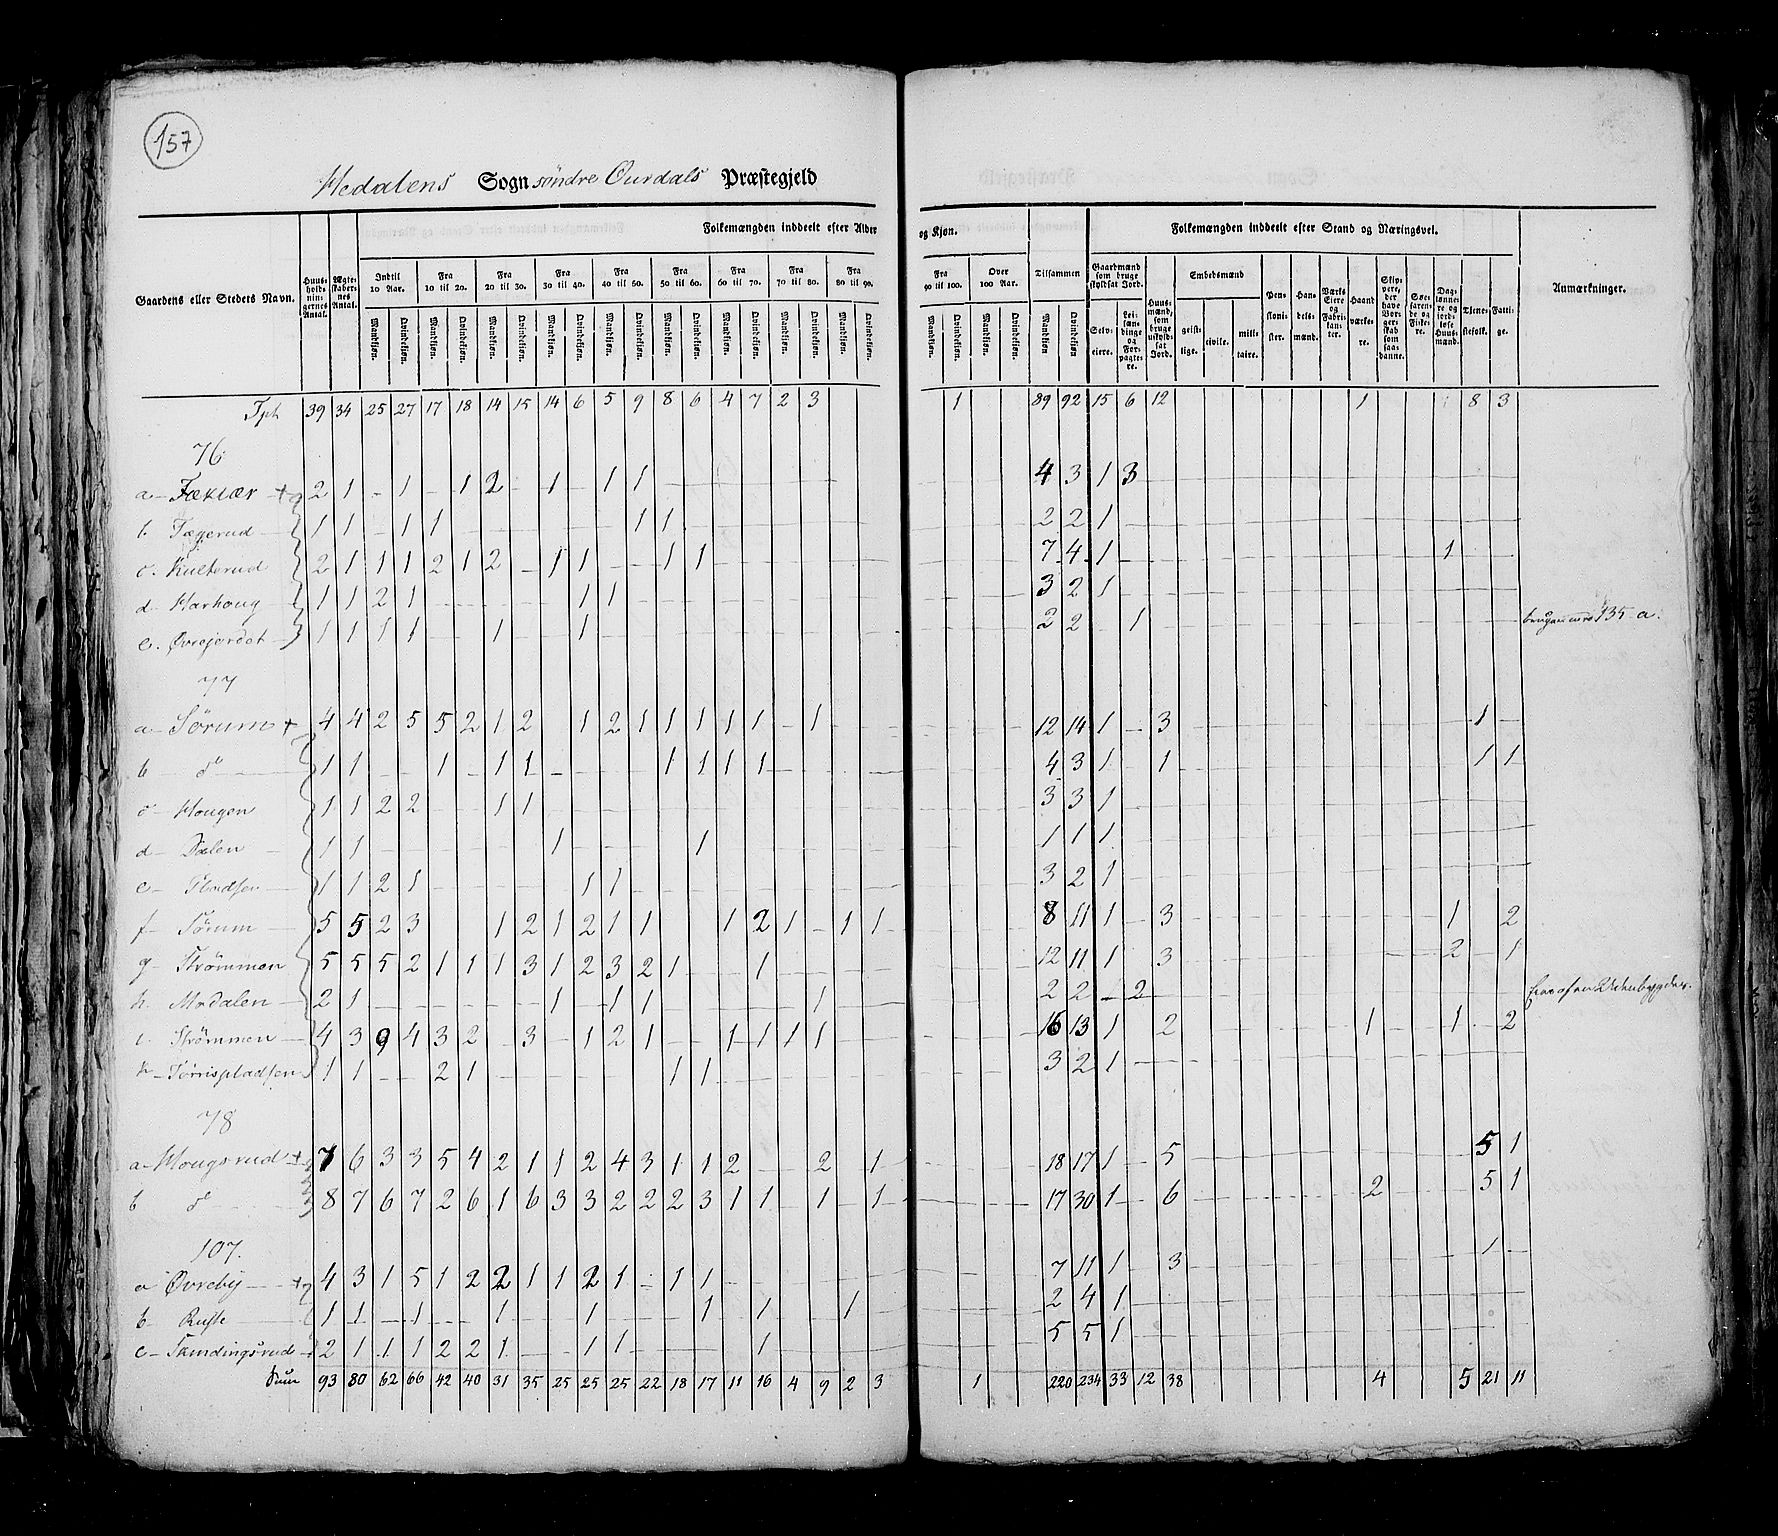 157
Hedalens Sogn søndre Ourdals Præstegjeld
Gaardens eller Stedets Navn.
Huus-holdningernes Antal.
Ægteskabernes Antal.
Folkemængden inddeelt efter Alder og Kjøn.
Indtil 10 Aar. Fra 10 til 20. Fra 20 til 30. Fra 30 til 40. Fra 40 til 50. Fra 50 til 60. Fra 60 til 70. Fra 70 til 80. Fra 80 til 90. Fra 90 til 100. Over 100 Aar. Tilsammen
Mandkjøn. Qvindekjøn.
Folkemængden inddeelt efter Stand og Næringsvei.
Gaardmænd som bruge skyldsat Jord. Selveiere. Leilændinge og Forpagtere.
Huusmænd, som bruge uskyldsat Jord.
Embedsmænd geistlige. civile. militaire.
Pensionister. Handelsmænd. Værks Eiere og Fabrikanter. Haandværkere. Skippere, der have Borgerskab som saadanne. Søefarende og Fiskere. Dagslønnere og jordløse Huusmænd. Tjenestefolk. Fattige.
Anmærkninger.
Tpt 39 34 25 27 17 18 14 15 14 6 5 9 8 6 4 7 2 3 1 89 92 15 6 12 1 8 3
76
a - Fækiær 2 1 - 1 - 1 2 - 1 - 1 1 4 3 1 3
b. Fægerud 1 1 - 1 1 1 1 2 2 1
c. Kulterud 2 1 1 1 2 1 2 - 1 1 1 1 7 4 1 1
d - Harhoug 1 1 2 1 1 1 3 2 1
e. Øvrejordet 1 1 1 1 1 1 2 2 1 135 a.
77
a - Sørum 4 4 2 5 5 2 1 2 1 2 1 1 1 1 1 - 1 12 14 1 - 3 1 -
b d° 1 1 1 1 1 1 1 1 1 4 3 1 1 1 1
c - Hougen 1 1 2 2 1 1 3 3 1
d - Dalen 1 1 1 1 1 1 1
e - Pladsen 1 1 2 1 1 1 3 2 1
f - Sørum 5 5 2 3 1 2 1 2 1 1 1 2 1 - 1 1 8 11 1 - 3 1 2
g - Strømmen 5 5 5 2 1 1 1 3 1 2 3 2 1 1 12 11 1 3 2 - 1
h. Modalen 2 1 1 - 1 1 1 2 2 - 2 Udenbygdes.
i. Strømmen 4 3 9 4 3 2 - 3 - 1 2 1 1 1 1 1 16 13 1 2 1 1 2
k - Tørrispladsen 1 1 - - 2 1 1 1 3 2 1
78
a - Hougsrud 7 6 3 3 5 4 2 1 1 2 4 3 1 1 2 2 1 18 17 1 - 5 5 1
b d° 8 7 6 7 2 6 1 6 3 3 2 2 2 3 1 1 1 - 1 17 30 1 - 6 2 5 1
107.
a Øvreby 4 3 1 5 1 2 2 1 1 2 1 - 1 1 7 11 1 3 1
b - Ruste 1 1 - 1 1 1 1 1 1 2 4 1
c - Tamdingsrud 2 1 1 1 2 2 1 1 1 1 5 5 1
Sum 93 80 62 66 42 40 31 35 25 25 25 22 18 17 11 16 4 9 2 3 1 220 234 33 12 38 4 5 21 11